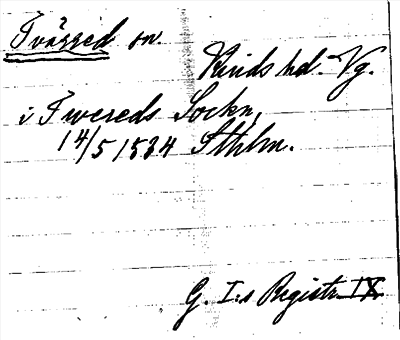 Tvärred sn.
Kinds hd. Vg.
i Twereds Sockn
14/5 1534 Sthlm.
G. I:s Registr. IX